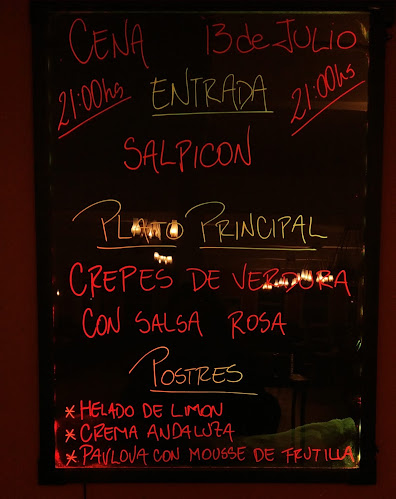 CENA 13 de JULIO
21:00hs 21:00hs
ENTRADA
SALPICON
PLATO PRINCIPAL
CREPES DE VERDURA
CON SALSA ROSA
POSTRES
* HELADO DE LIMON
* CREMA ANDALUZA
* PAVLOVA CON MOUSSE DE FRUTILLA